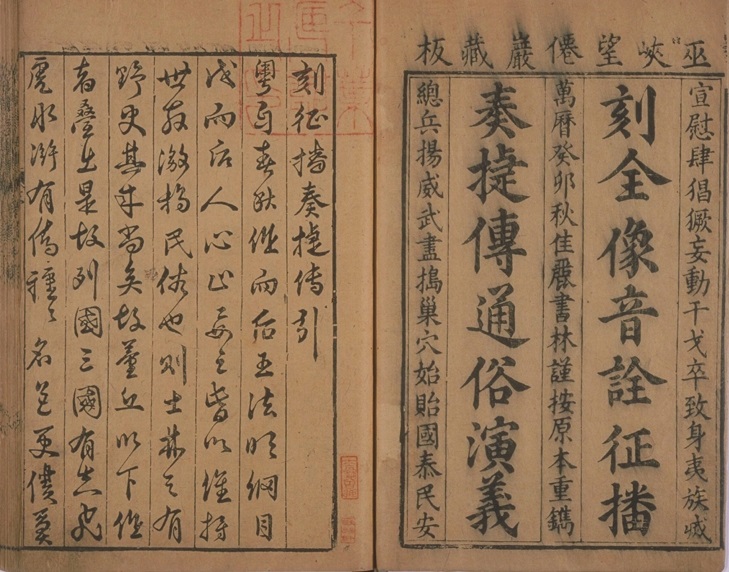 巫峽望僊巖藏板
宣慰肆猖獗妄動干戈卒致身夷族滅
刻全像音詮征播
萬曆癸卯秋佳麗書林謹按原本重鐫
奏捷傳通俗演義
總兵揚威武盡搗巢穴始貽國泰民安
刻征播奏捷傳引
粵自春秋作而后王法明綱目
成而后人心正要之皆以維持
世教激揚民俗也則士林之有
野史其來尚矣故丘以下作
者疊出是故列國三國有志
水滸有傳種々名色更僕莫